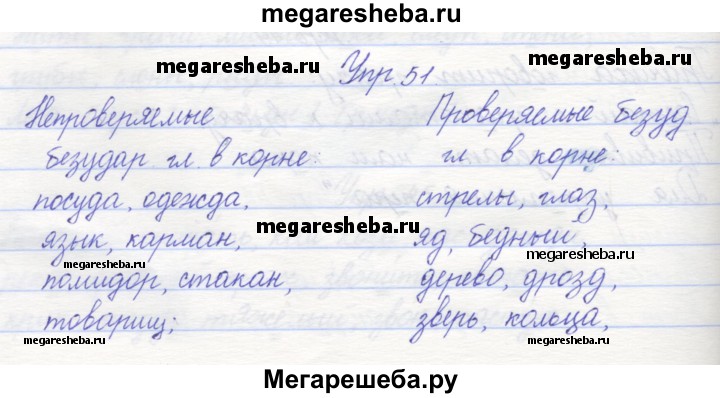 megaresheba.ru
megaresheba.ru
Упр. 51
Непроверяемые
безудар гл. в корне:
посуда, одежда,
язык, карман,
помидор, стакан,
товарищ;
Проверяемые безуд
гл. в корне:
стрелы, глаз,
яд, бедный,
дерево, дрозд,
зверь, кольца,
megaresheba.ru
megaresheba.ru
megaresheba.ru
megaresheba.ru
megaresheba.ru
Мегарешеба.ру